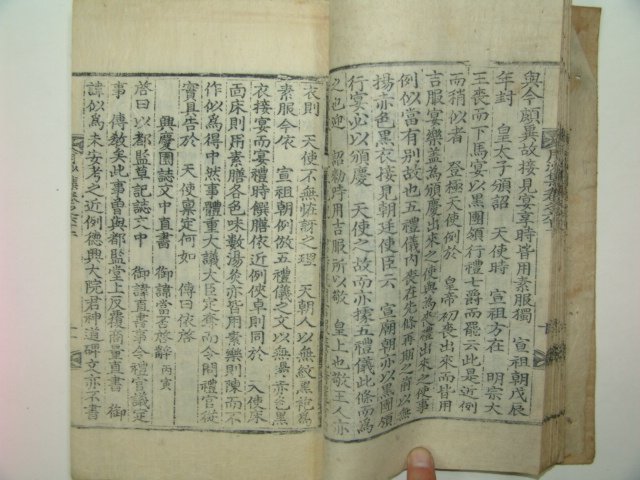 與今頗異故接見宴享時皆用素服獨 宣祖朝戊辰
年封 皇太子頒詔 天使時 宣祖方在 明宗大
王喪而下馬宴以黑團領行禮七爵而罷云此是近例
而稍似者 登極天使例於 皇帝初喪出來而皆用
吉服宴樂盖為頒慶出來之使與為來禮出來之使事
例似當有別故也五禮儀內喪在先條再期之前以無
揚赤色黑衣接見朝廷使臣云 宣廟朝亦以黑團領
行宴必以頒慶 天使之故而亦據五禮儀此條而為
之也迎 詔勅時用吉服所以敬 皇上也敬王人亦
衣則 天使不無恠訝之理 天朝人以無紋黑袍為
素服今依 宣祖朝例倣五禮儀之文以無揚赤色黑
衣接宴而宴禮時饌膳依近例俠卓則同於 入使床
面床則用素膳各色味數湯煑亦皆用素樂則陳而不
作似為得中然事體重大議大臣定奪而令問禮官從
實具告於 天使稟定何如 傳曰依啓
興慶園誌文中直書 御諱當否啓辭 丙寅
啓曰以都監草記誌文中 御諱直書事令禮官議定
事 傳敎矣此事曾與都監堂上反覆商量直書 御
諱似為未安考之近例德興大院君神道碑文亦不書